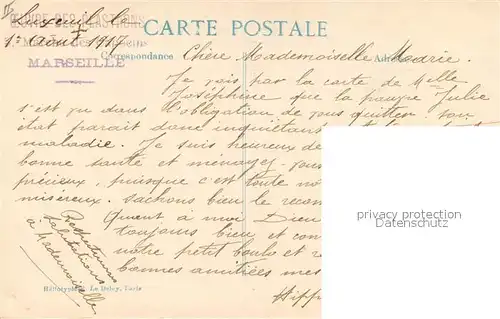 ŒUVRE DES PLASTRONS
CARTE POSTALE
1er Août 1917
MARSEILLE
Correspondance
Chère Mademoiselle Marie.
Je vois par la carte de Melle
Joséphine que la pauvre Julie
s'est vu dans l'obligation de vous quitter. Son
état parait donc inquiétant
maladie. Je suis heureux de
bonne santé et ménagez-vous
précieux, puisque c'est toute no
miséreux. Sachons bien le recon
Quant à moi Dieu
toujours bien et con
notre petit boulo et
bonnes amitiées mes
Hipp
Respectueuses
salutations
à Mademoiselle
Héliotypie Le Deley, Paris
privacy protection
Datenschutz